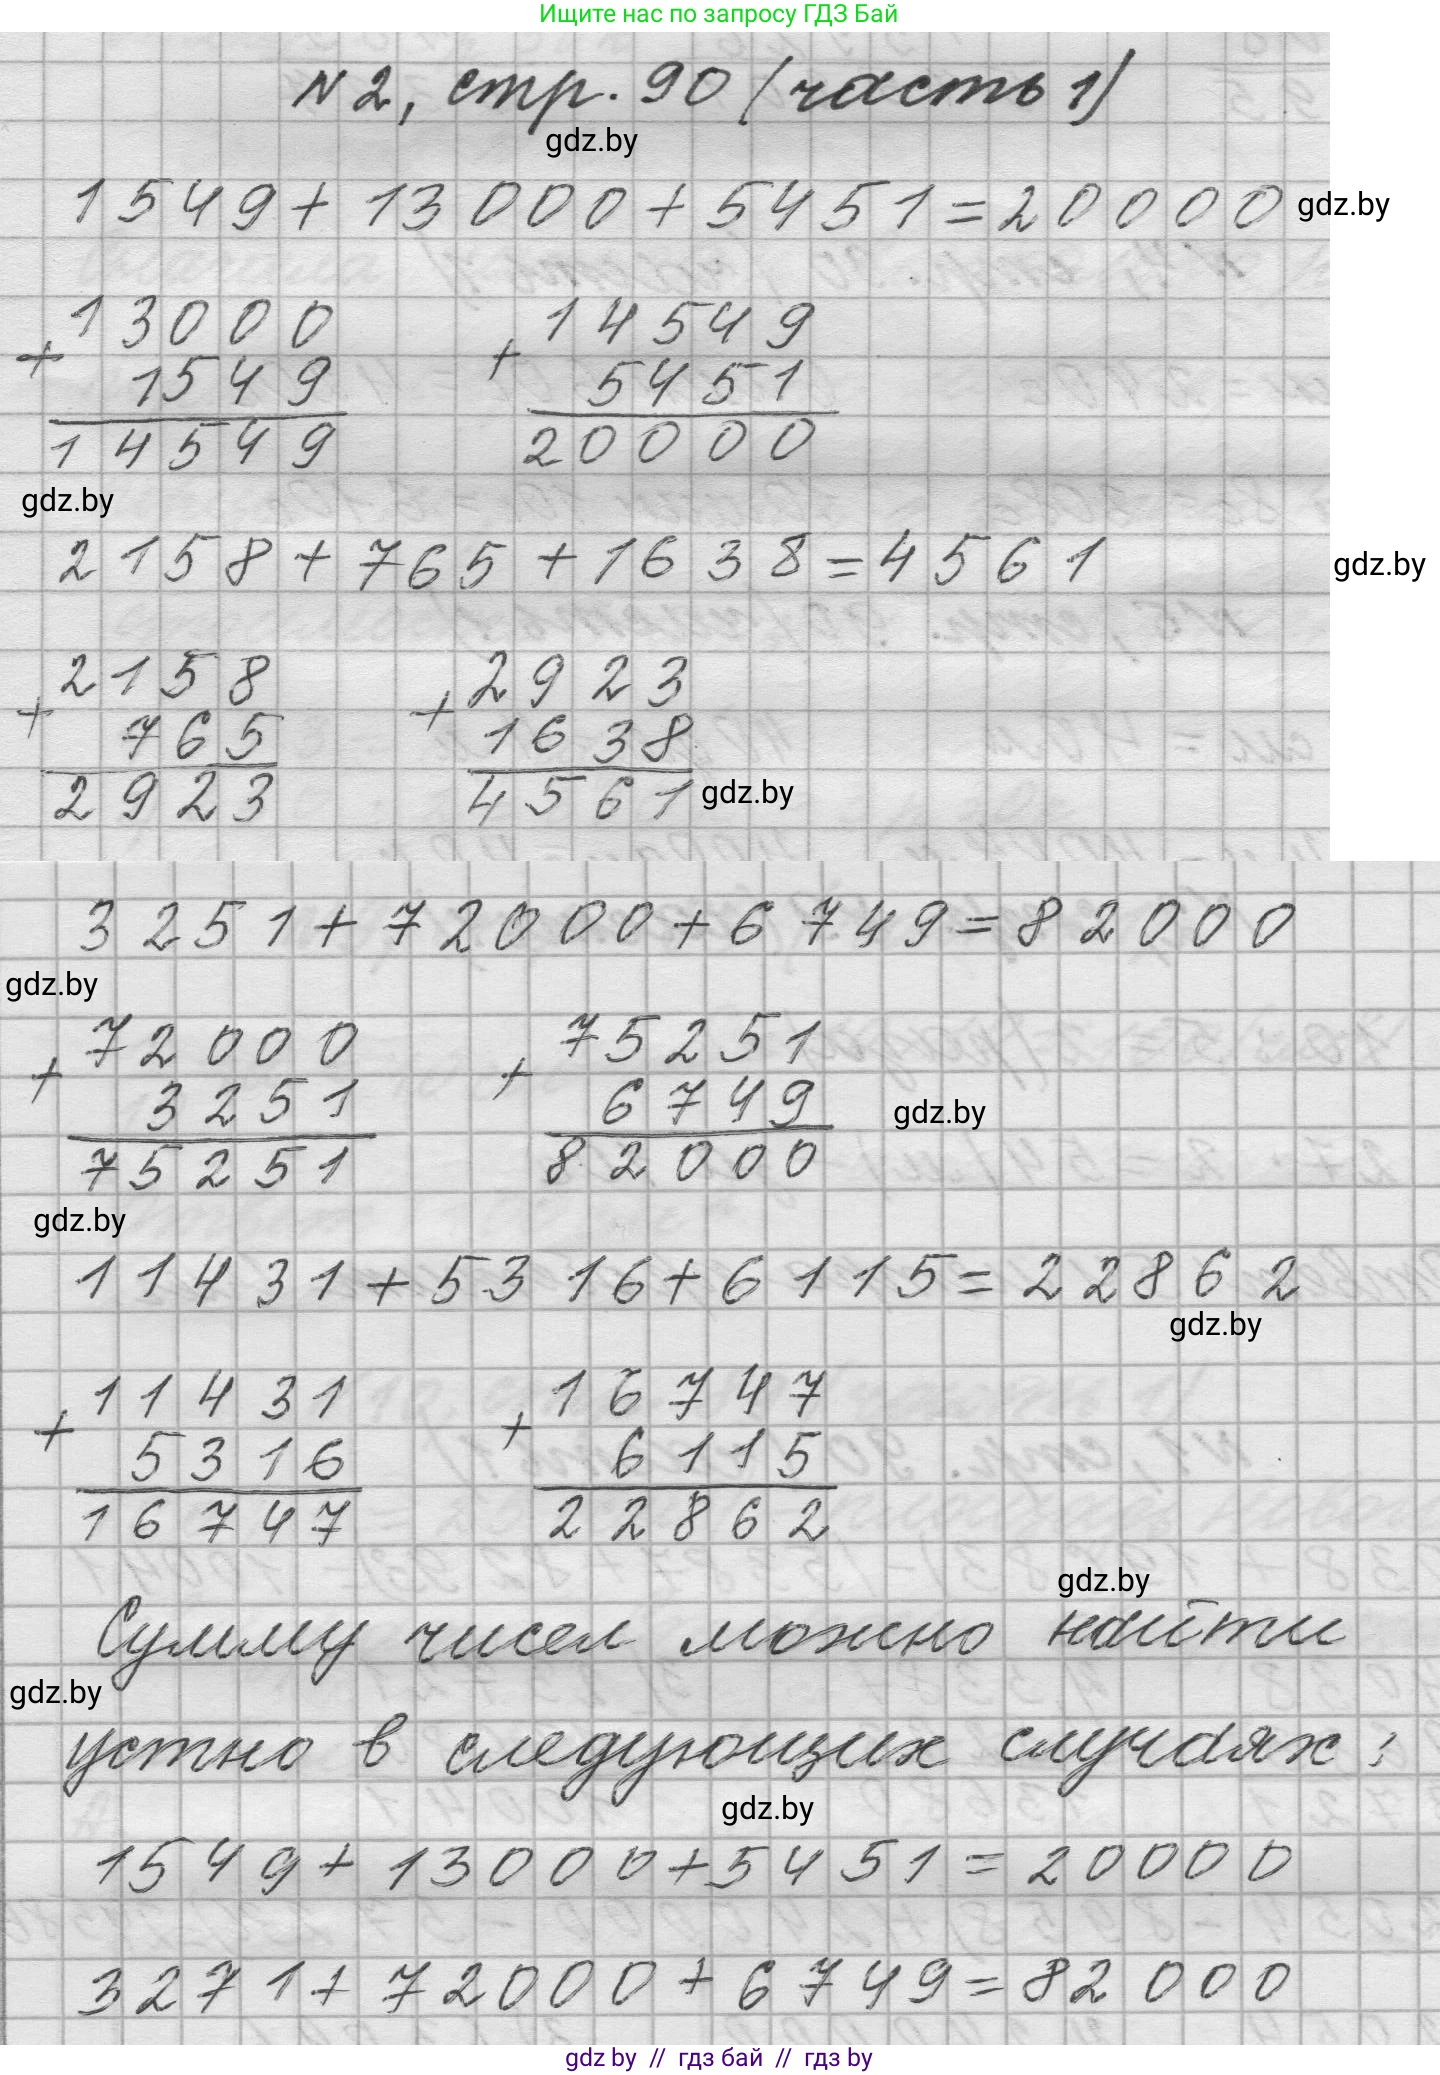 Ищите нас по запросу ГДЗ Бай
№2, стр. 90 (часть 1)
gdz.by
1549+13000+5451=20000
gdz.by
13000
+
1549
14549
14549
+
5451
20000
gdz.by
2158+765+1638=4561
gdz.by
2158
+
765
2923
2923
+
1638
4561
gdz.by
3251+72000+6749=82000
gdz.by
72000
+
3251
75251
75251
+
6749
82000
gdz.by
gdz.by
11431+5316+6115=22862
gdz.by
11431
+
5316
16747
16747
+
6115
22862
gdz.by
Сумму чисел можно найти
gdz.by
устно в следующих случаях:
gdz.by
1549+13000+5451=20000
3271+72000+6749=82000
gdz by // гдз бай // гдз by